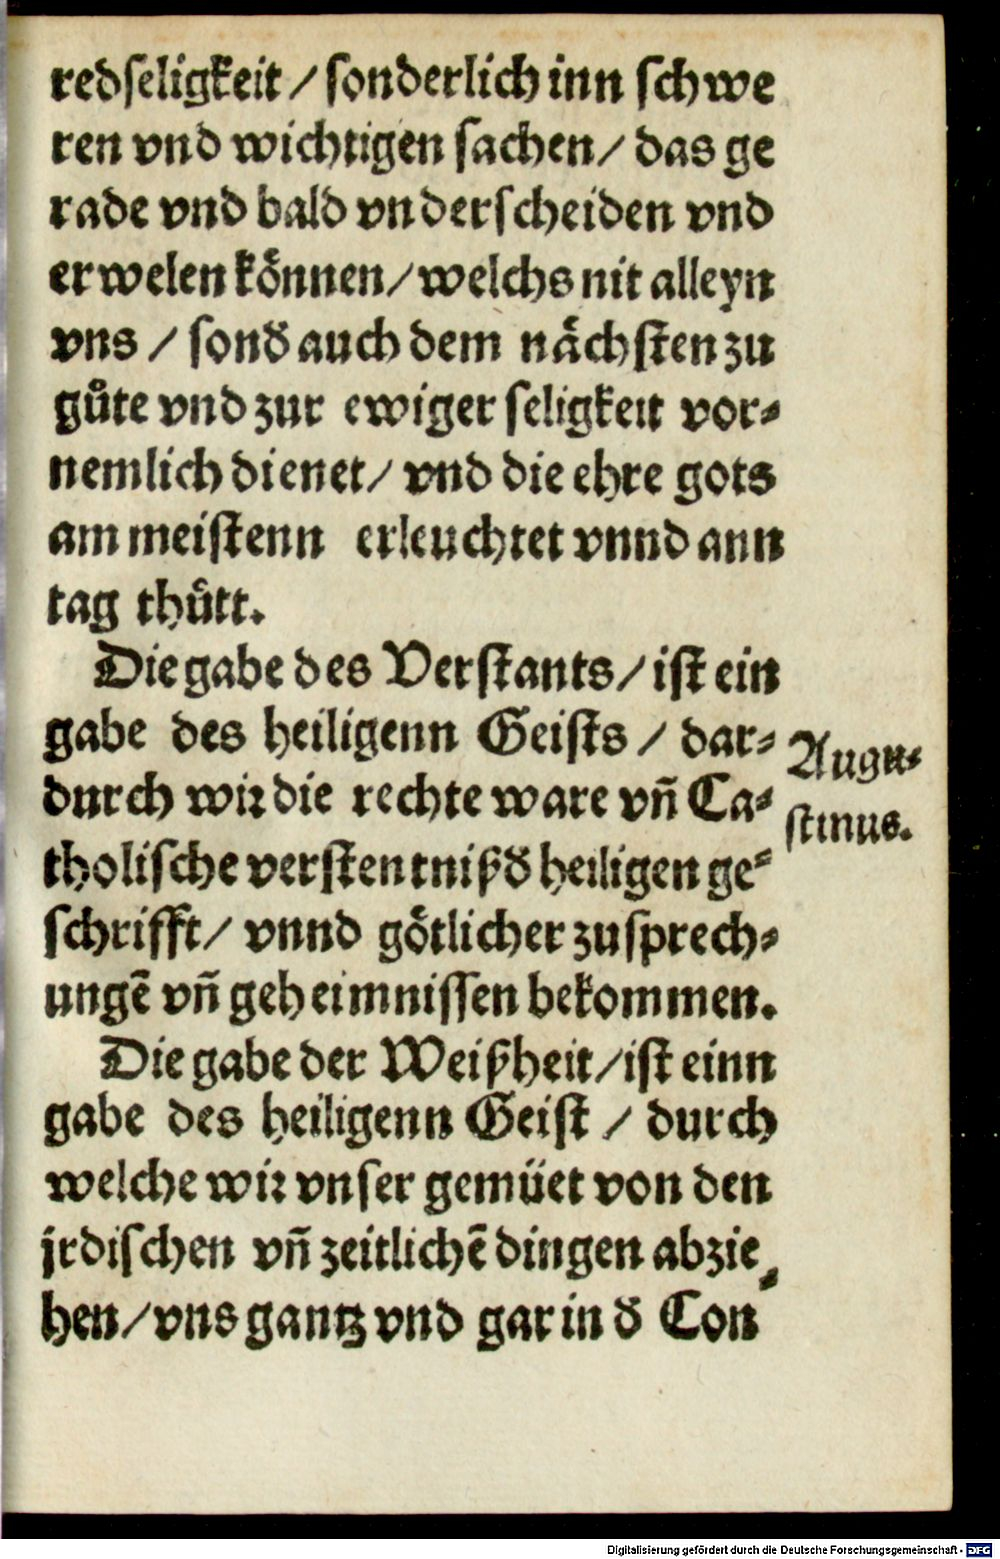 redseligkeit / sonderlich inn schwe
ren vnd wichtigen sachen / das ge
rade vnd bald vnderscheiden vnd
erwelen koͤnnen / welchs nit alleyn
vns / sond̕ auch dem naͤchsten zu
guͦte vnd zur ewiger seligkeit vor⸗
nemlich dienet / vnd die ehre gots
am meistenn erleuchtet vnnd ann
tag thuͤtt.
Die gabe des Verstants / ist ein
gabe des heiligenn Geists / dar⸗
durch wir die rechte ware vn̄ Ca⸗
tholische verstentniß d̕ heiligen ge⸗
schrifft / vnnd goͤtlicher zusprech⸗
ungē vn̄ geheimnissen bekommen.
Die gabe der Weißheit / ist einn
gabe des heiligenn Geist / durch
welche wir vnser gemüet von den
jrdischen vn̄ zeitlichē dingen abzie⸗
hen / vns gantz vnd gar in d̕ Con
Augu⸗
stinus.
Digitalisierung gefördert durch die Deutsche Forschungsgemeinschaft - DFG